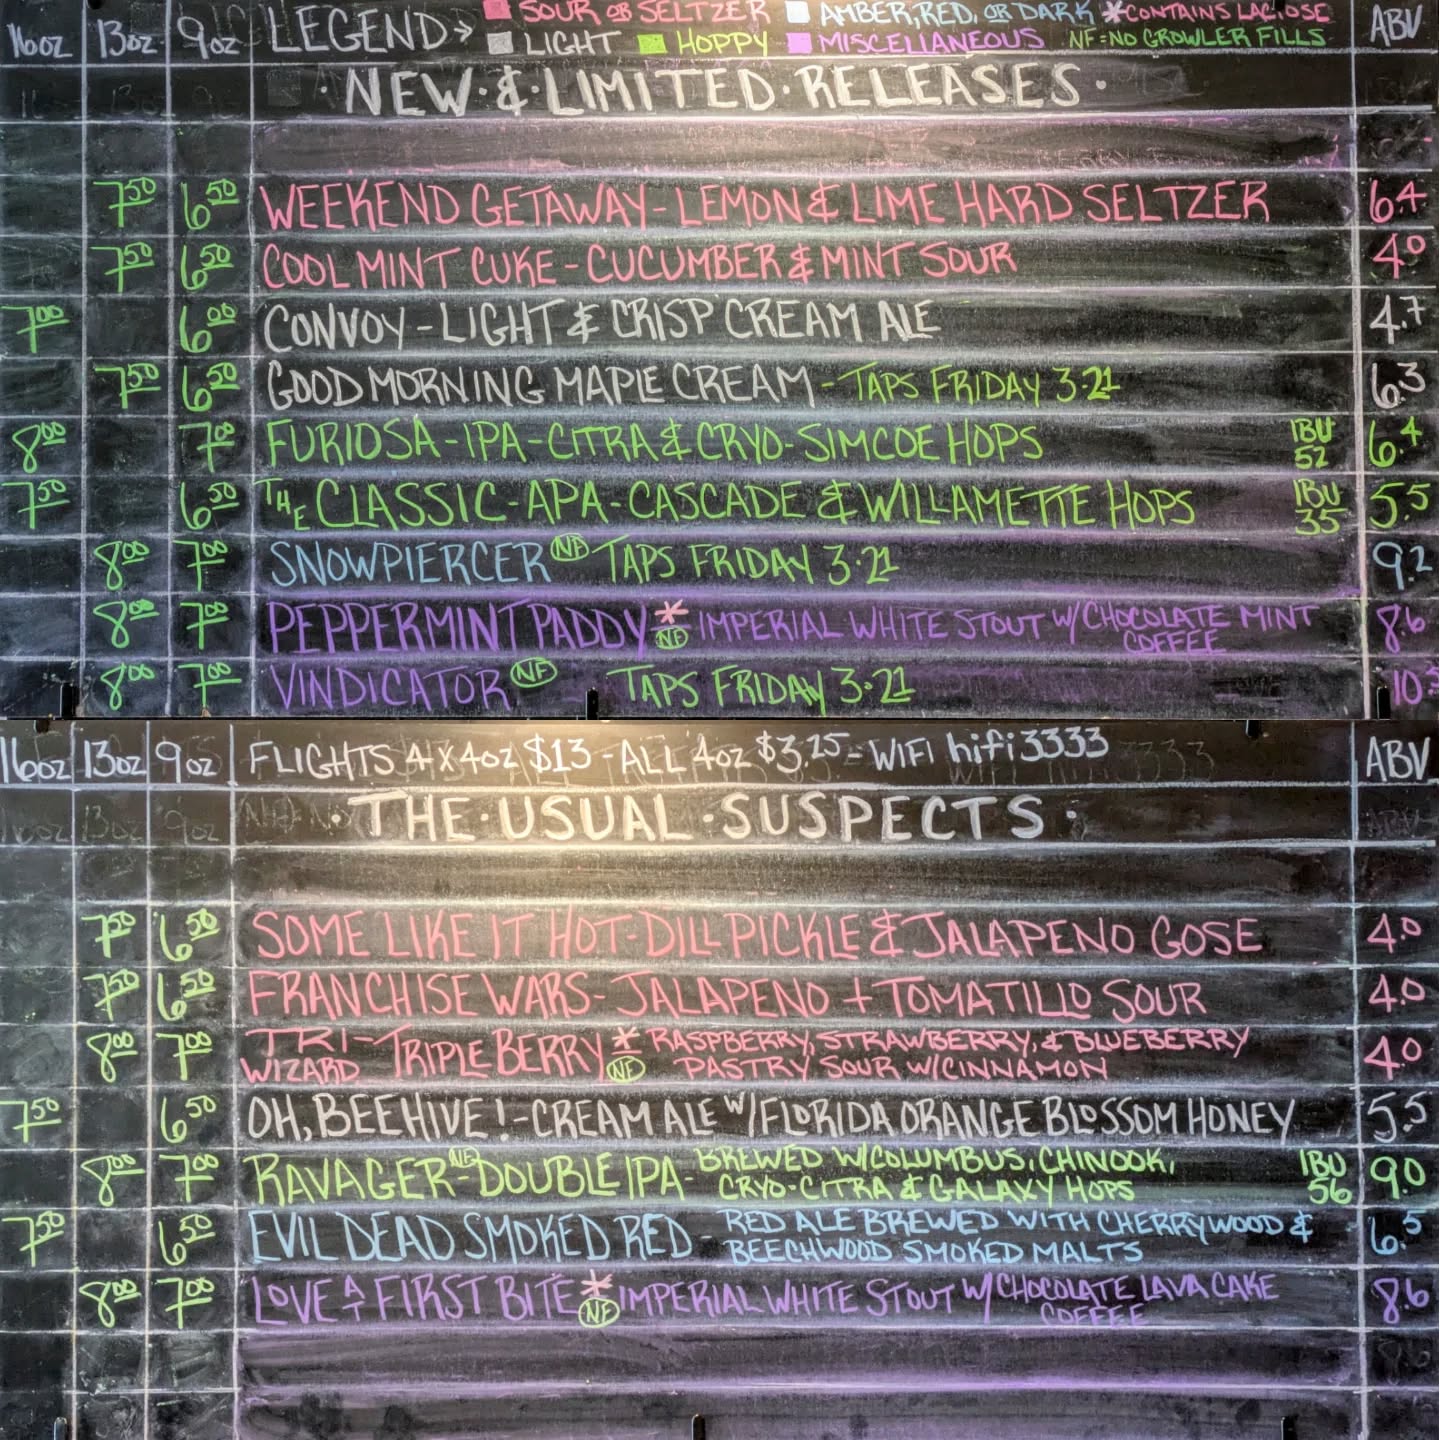 16oz 13oz 9oz LEGEND> SOUR OR SELTZER AMBER, RED, OR DARK *CONTAINS LACTOSE ABV
LIGHT HOPPY MISCELLANEOUS NF=NO GROWLER FILLS
·NEW·&·LIMITED·RELEASES·
7.50 6.50 WEEKEND GETAWAY-LEMON & LIME HARD SELTZER 6.4
7.50 6.50 COOL MINT CUKE-CUCUMBER & MINT SOUR 4.0
7.00 6.00 CONVOY-LIGHT & CRISP CREAM ALE 4.7
7.50 6.50 GOOD MORNING MAPLE CREAM -TAPS FRIDAY 3·21 6.3
8.00 7.00 FURIOSA-IPA-CITRA & CRYO-SIMCOE HOPS IBU 52 6.4
7.50 6.50 THE CLASSIC-APA-CASCADE & WILLAMETTE HOPS IBU 35 5.5
8.00 7.00 SNOWPIERCER NF TAPS FRIDAY 3·21 9.2
8.00 7.00 PEPPERMINT PADDY * NF IMPERIAL WHITE STOUT W/CHOCOLATE MINT 8.6
COFFEE
8.00 7.00 VINDICATOR NF TAPS FRIDAY 3·21 10.3
16oz 13oz 9oz FLIGHTS 4x4oz $13-ALL 4oz $3.25-WIFI hifi3333 ABV
·THE·USUAL·SUSPECTS·
7.50 6.50 SOME LIKE IT HOT-DILL PICKLE & JALAPENO GOSE 4.0
7.50 6.50 FRANCHISE WARS-JALAPENO + TOMATILLO SOUR 4.0
8.00 7.00 TRI-WIZARD TRIPLE BERRY * NF RASPBERRY, STRAWBERRY, & BLUEBERRY 4.0
PASTRY SOUR W/CINNAMON
7.50 6.50 OH, BEEHIVE!-CREAM ALE W/FLORIDA ORANGE BLOSSOM HONEY 5.5
8.00 7.00 RAVAGER NF-DOUBLE IPA-BREWED W/COLUMBUS, CHINOOK, IBU 56 9.0
CRYO-CITRA & GALAXY HOPS
7.50 6.50 EVIL DEAD SMOKED RED - RED ALE BREWED WITH CHERRYWOOD & 6.5
BEECHWOOD SMOKED MALTS
8.00 7.00 LOVE AT FIRST BITE * NF IMPERIAL WHITE STOUT W/CHOCOLATE LAVA CAKE 8.6
COFFEE